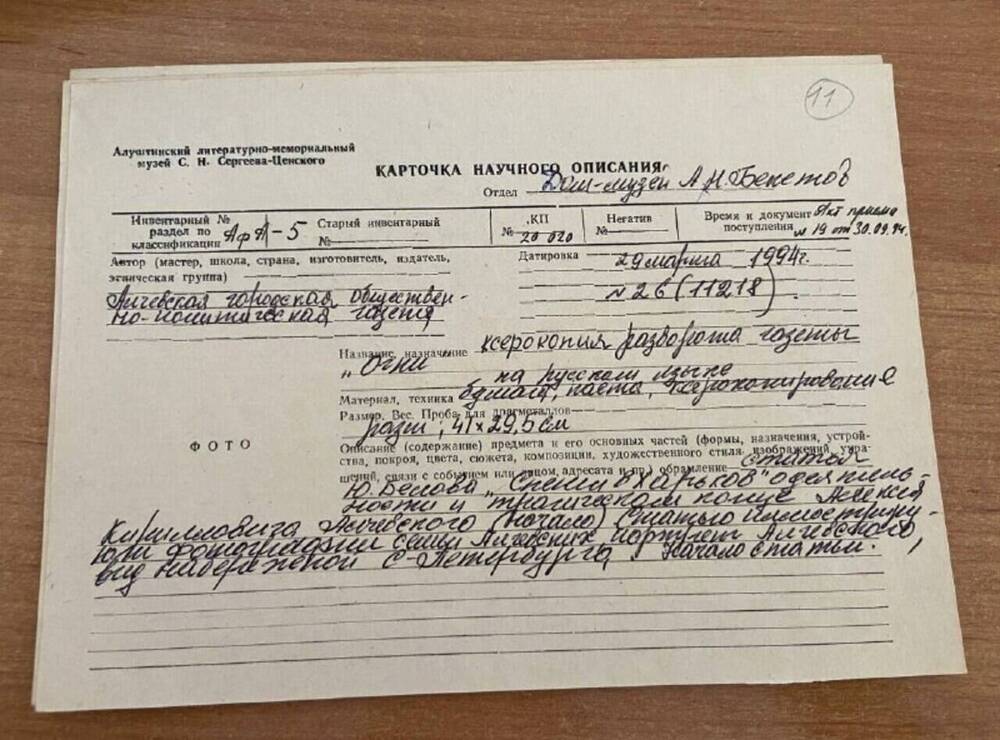 11
Алуштинский литературно-мемориальный
музей С. Н. Сергеева-Ценского
КАРТОЧКА НАУЧНОГО ОПИСАНИЯ
Отдел Дом-музей А.Н.Бекетов
Инвентарный №
раздел по
классификации АфА-5
Старый инвентарный
№
КП
№ 20 020
Негатив
№
Время и документ Акт приема
поступления № 19 от 30.09.94.
Автор (мастер, школа, страна, изготовитель, издатель,
этническая группа)
Алчевская городская обществен-
но-политическая газета
Датировка 29 марта 1994г.
№ 26 (11218)
Название, назначение ксерокопия разворота газеты
„Огни" на русском языке
Материал, техника бумага, паста, ксерокопирование
Размер. Вес. Проба для драгметаллов
разм; 41×29,5 см
ФОТО
Описание (содержание) предмета и его основных частей (формы, назначения, устрой-
ства, покроя, цвета, сюжета, композиции, художественного стиля, изображений, укра-
шений, связи с событием или лицом, адресата и пр.) обрамление статья
Ю. Белова „ в Харьков" о деятель-
ности и трагическом конце Алексея
Кирилловича Алчевского (начало) Статью иллюстриру-
ют фотографии семьи Алчевских портрет Алчевского,
вид набережной С-Петербурга, Начало статьи.